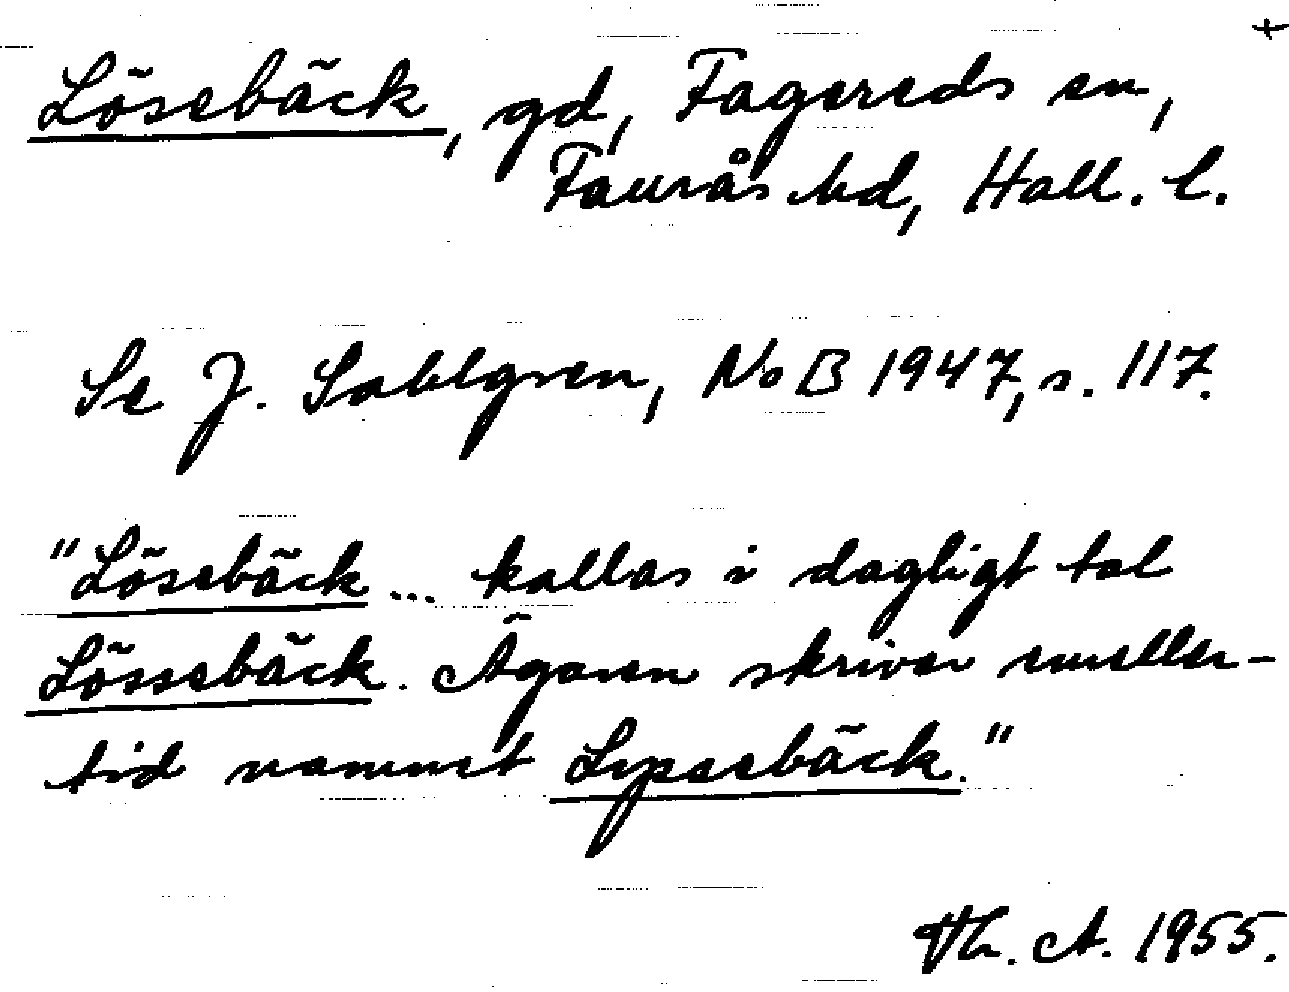 +
Lösebäck, gd, Fagereds sn,
Faurås hd, Hall. l.
Se J. Sahlgren, NoB 1947, s. 117.
"Lösebäck ... kallas i dagligt tal
Lössebäck. Ägaren skriver emeller-
tid namnet Lyssebäck."
Th. A. 1955.